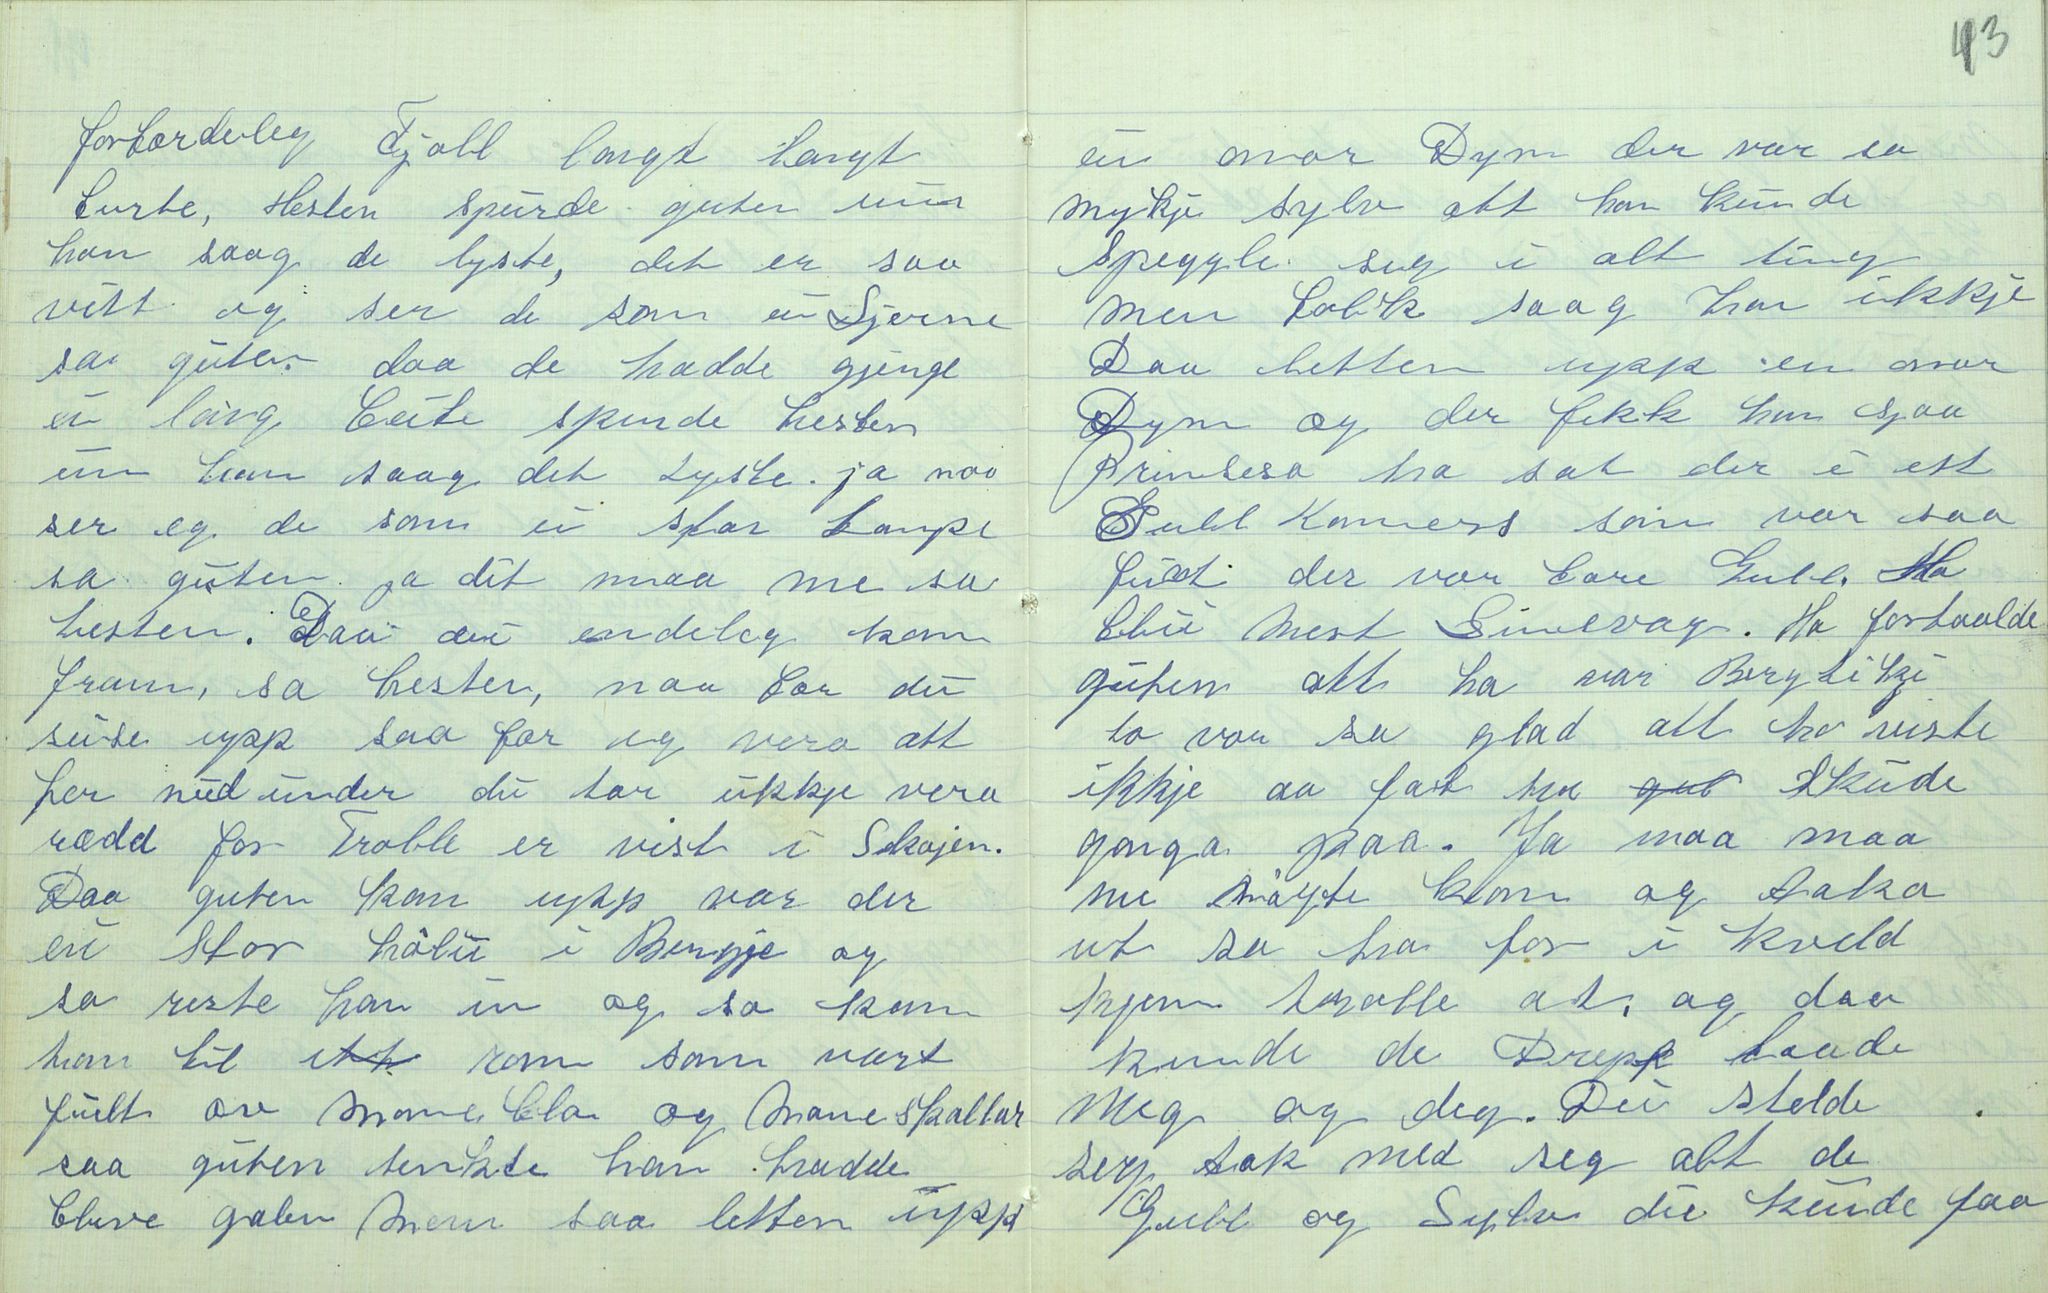 forfærdeleg Fjell langt langt
burte, Hesten spurde guten um
han saag de lyste, det er saa
vitt og ser de som ei Sjerne
sa guten. daa de hadde gjenge
ei laing beite spurde hesten
um han saag det Lyste. ja noo
ser eg de som ei stor Lampe
sa guten ja dit maa me sa
hesten. Daa dei endeleg kom
fram, sa hesten, naa bør du
suse upp saa for eg vera att
her nedunder du tar ikkje vera
rædd for Trolle er vist i Skojen.
Daa guten kom upp var der
ei stor hôlu i Bergje og
sa reste han in og so kom
han til rom som vart
fullt av Mane blo og Mane skallar
saa guten tenkte han hadde
bleve galen Men saa letten upp
43
ei onnor Dyrr der var so
mykje sylv att han kunde
Speggle seg i alt ting
men Folk saag han ikkje
Daa letten upp ei onnor
Dyrr og der fekk han sjaa
Prinsesa ho sat der i ett
Gull Kamers som var saa
fint der var bare Gull. Ho
blei mest Sinevag. Ho fortaalde
guten att ho var Bergtikji
ho var so glad att ho viste
ikkje aa fot ho gut skulde
gonga paa. Ja maa maa
me Møyte kom og taka
ut sa ho for i kveld
kjem trolle at. og daa
kunde de Drepe baade
Meg og deg. Dei stelde
seg tok med seg alt de
Gull og Sylv dei kunde faa